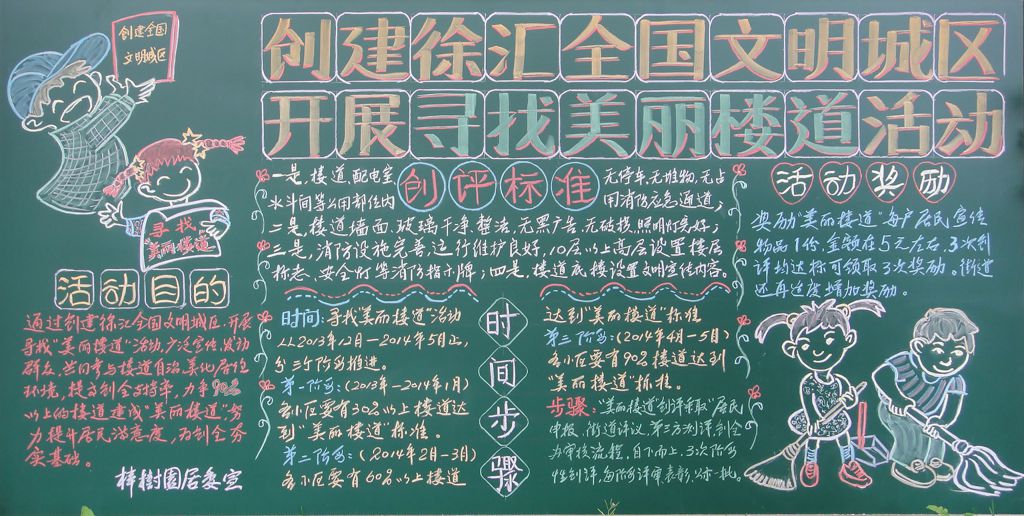 创建全国
文明城区
创建徐汇全国文明城区
开展寻找美丽楼道活动
寻找
"美丽楼道"
活动目的
通过创建徐汇全国文明城区,开展
寻找"美丽楼道"活动,广泛宣传、发动
群众,共同参与楼道自治、美化居住
环境,提高创全支持率,力争90%
以上的楼道建成"美丽楼道",努
力提升居民满意度,为创全夯
实基础。
梓树园居委宣
创评标准
一是,楼道、配电室、
水斗间等公用部位内
无停车、无堆物、无占
用消防应急通道;
二是,楼道墙面、玻璃干净、整洁,无黑广告、无破损,照明灯完好;
三是,消防设施完善,运行维护良好,10层以上高层设置楼层
标志、安全灯等消防指示牌;四是,楼道底楼设置文明宣传内容。
活动奖励
奖励"美丽楼道"每户居民宣传
物品1份,金额在5元左右,3次创
评均达标可领取3次奖励。街道
还再适度增加奖励。
时间步骤
时间:寻找"美丽楼道"活动
从2013年12月—2014年5月止,
分三个阶段推进。
第一阶段:(2013年—2014年1月)
各小区要有30%以上楼道达
到"美丽楼道"标准。
第二阶段:(2014年2月—3月)
各小区要有60%以上楼道
达到"美丽楼道"标准
第三阶段:(2014年4月—5月)
各小区要有90%楼道达到
"美丽楼道"标准。
步骤:"美丽楼道"创评采取"居民
申报、街道评议、第三方测评、创全
办审核流程,自下而上,3次阶段
性创评,每阶段评审、表彰、公示一批。